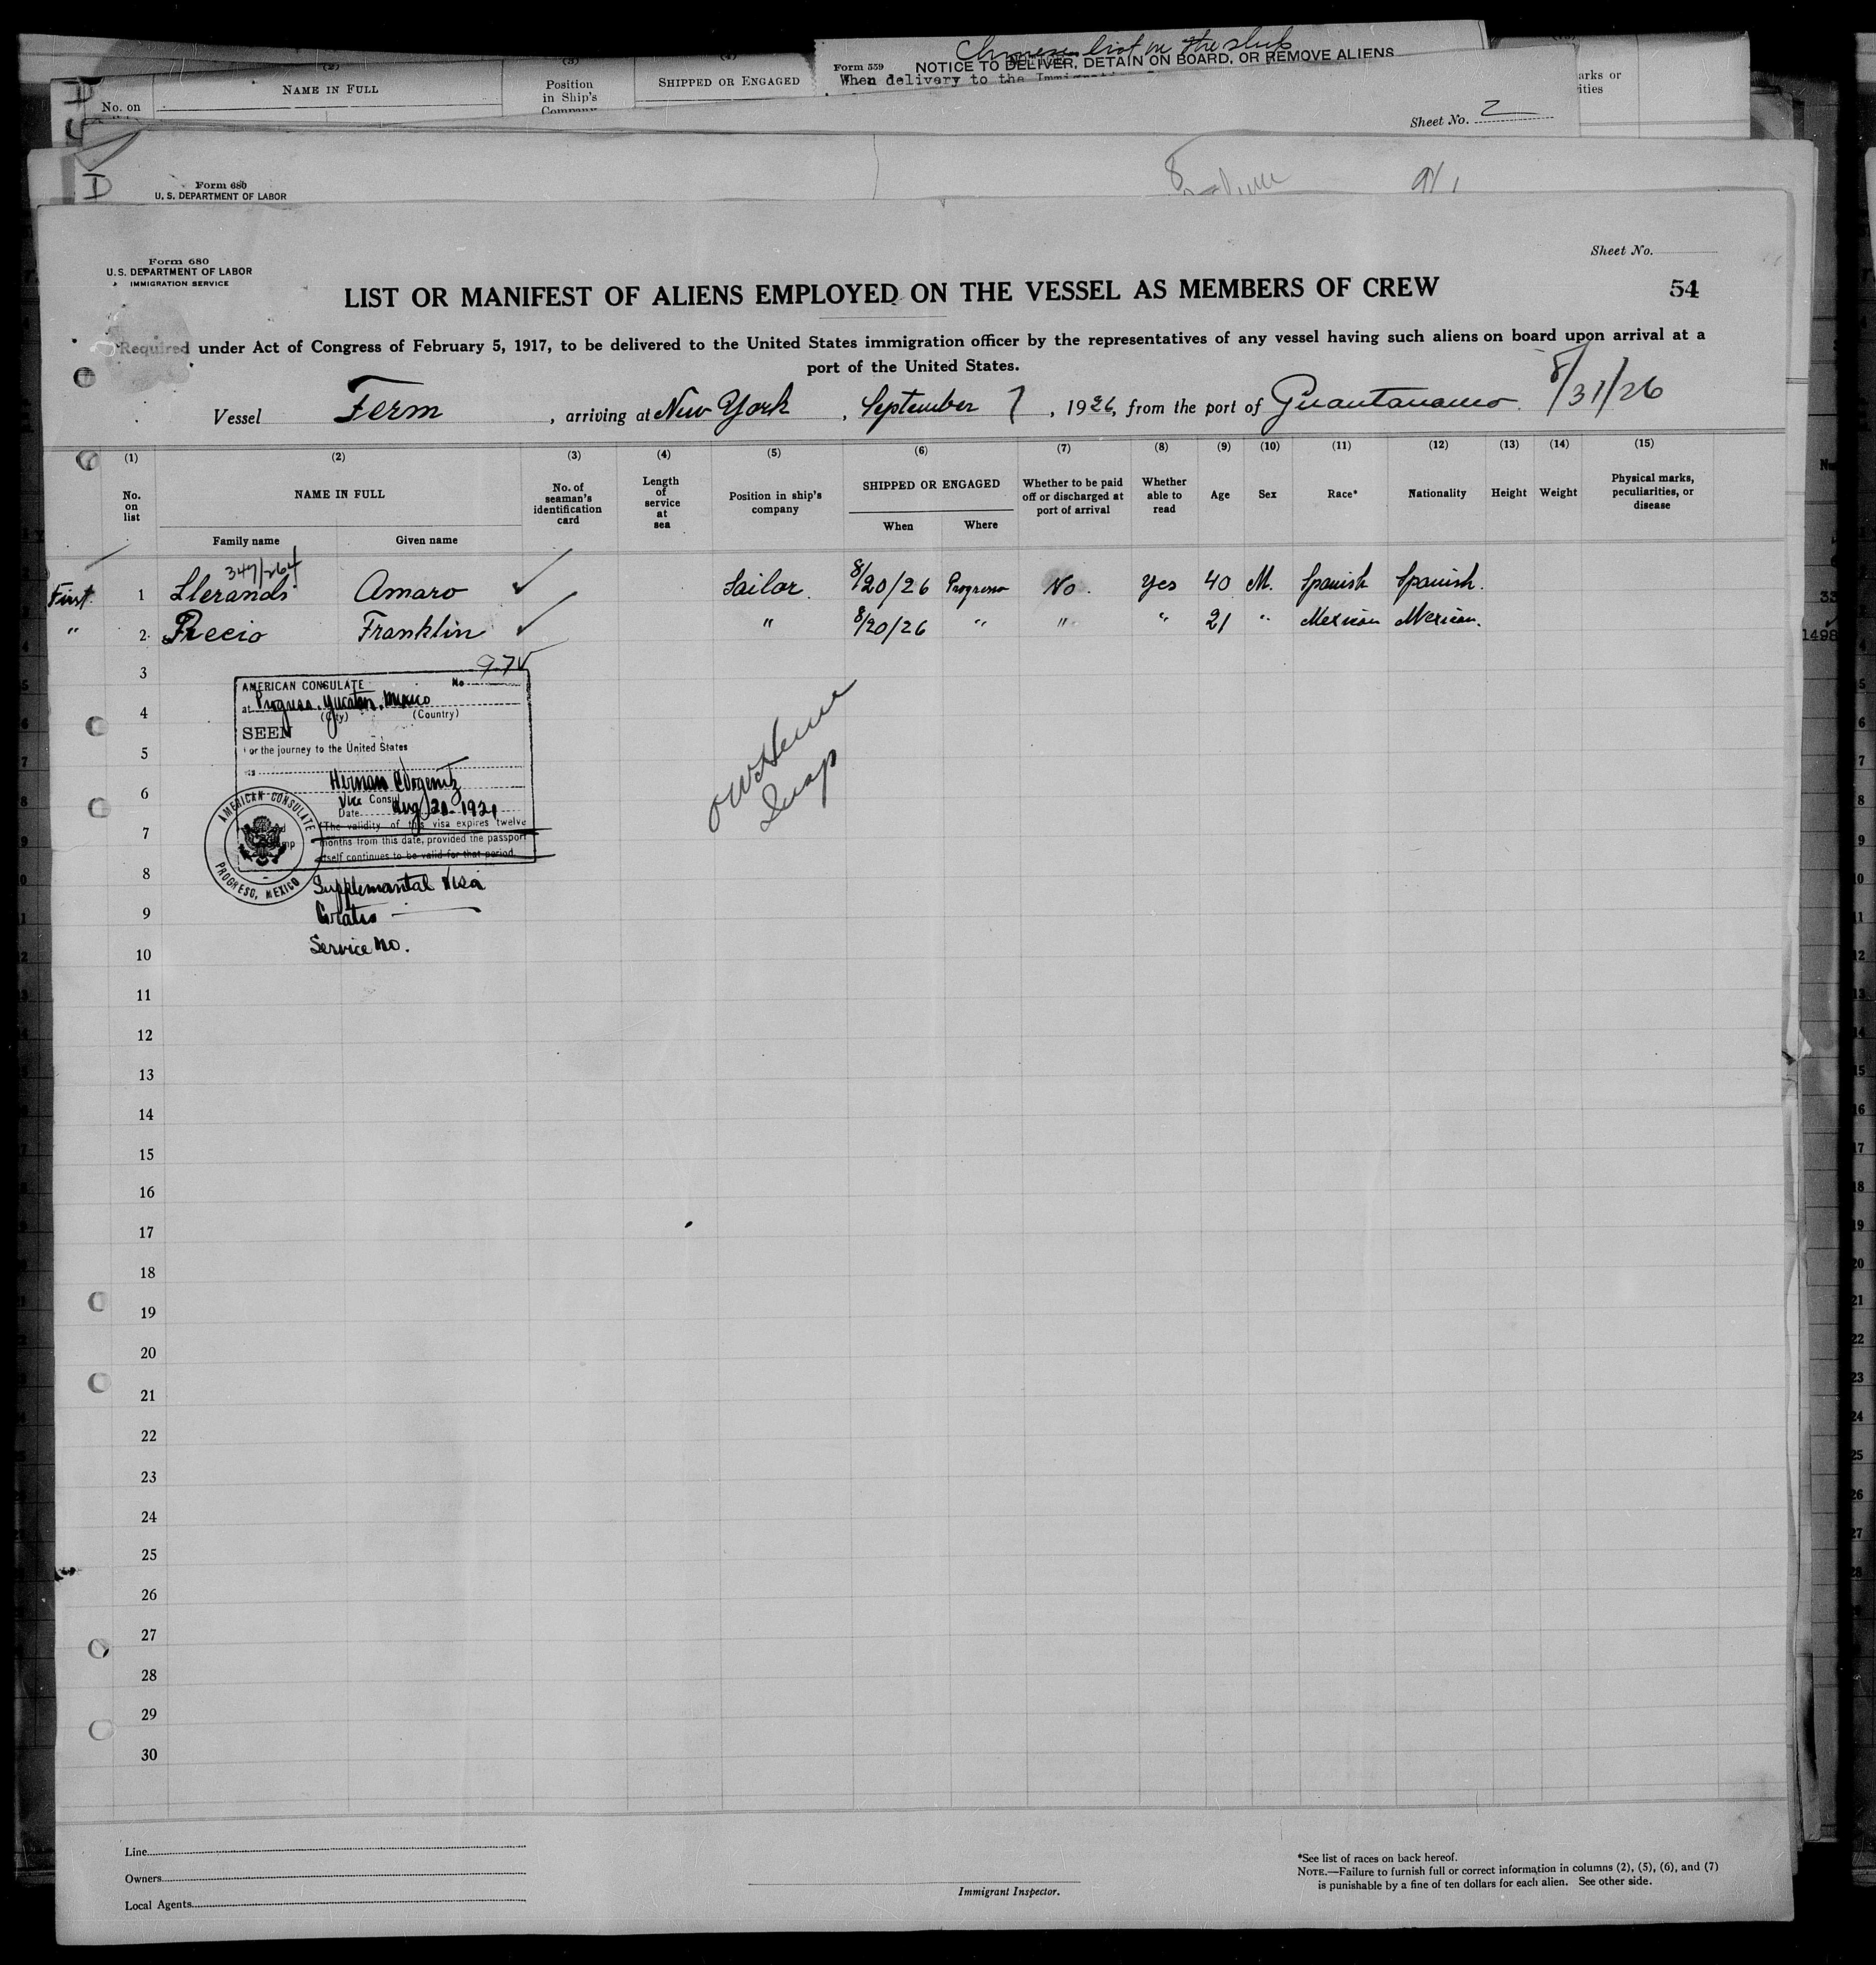 Chinese list in the
NAME IN FULL
Position
in Ship's
Company
SHIPPED OR ENGAGED
Form 559
NOTICE TO DELIVER, DETAIN ON BOARD, OR REMOVE ALIENS
When delivery to the
No. on
Sheet No. 2
D
Form 680
U. S. DEPARTMENT OF LABOR
Form 680
U. S. DEPARTMENT OF LABOR
IMMIGRATION SERVICE
Sheet No.
LIST OR MANIFEST OF ALIENS EMPLOYED ON THE VESSEL AS MEMBERS OF CREW
54
Required under Act of Congress of February 5, 1917, to be delivered to the United States immigration officer by the representatives of any vessel having such aliens on board upon arrival at a
port of the United States.
Vessel Ferm, arriving at New York, September 7, 1926, from the port of Guantanamo. 8/31/26
(1) (2) (3) (4) (5) (6) (7) (8) (9) (10) (11) (12) (13) (14) (15)
No. on list
NAME IN FULL
Family name Given name
No. of seaman's identification card
Length of service at sea
Position in ship's company
SHIPPED OR ENGAGED
When Where
Whether to be paid off or discharged at port of arrival
Whether able to read
Age
Sex
Race*
Nationality
Height
Weight
Physical marks, peculiarities, or disease
347/264
First 1 Llerandi Amaro ✓ Sailor. 8/20/26 Progreso No. Yes 40 M. Spanish Spanish.
" 2 Recio Franklin ✓ " 8/20/26 " " " 21 " Mexican Mexican.
3
4
5
6
7
8
9
10
11
12
13
14
15
16
17
18
19
20
21
22
23
24
25
26
27
28
29
30
AMERICAN CONSULATE No.
at Progreso, Yucatan, Mexico
(City) (Country)
SEEN
For the journey to the United States
Vice Consul
Date Aug 20 192
(The validity of this visa expires twelve
months from this date, provided the passport
itself continues to be valid for that period.
AMERICAN CONSULATE
PROGRESO, MEXICO
Supplemental Visa
Gratis
Service No.
Insp
Line
Owners
Local Agents
Immigrant Inspector.
*See list of races on back hereof.
NOTE.—Failure to furnish full or correct information in columns (2), (5), (6), and (7)
is punishable by a fine of ten dollars for each alien. See other side.